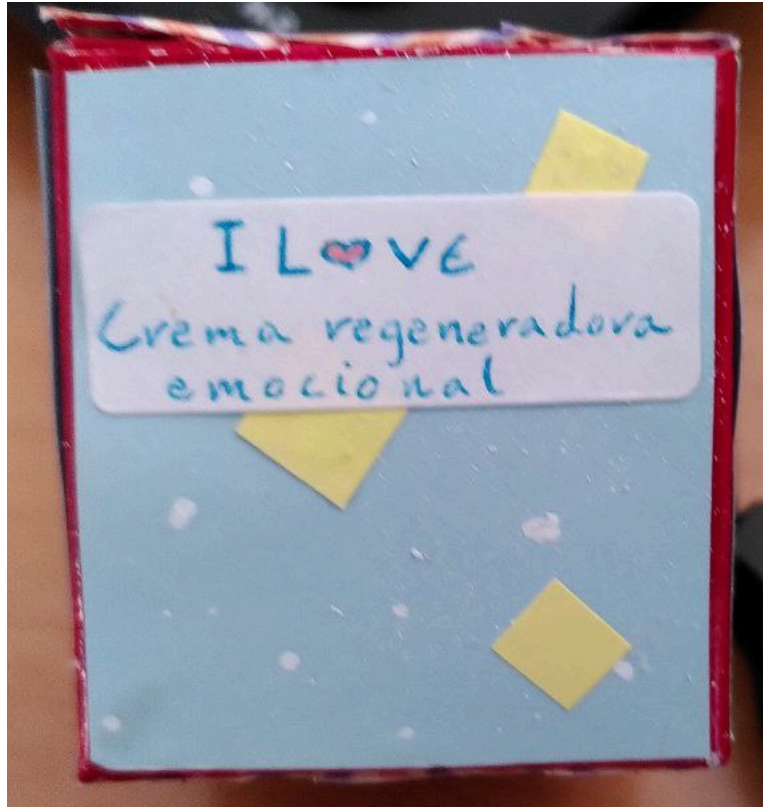 I L❤VE
Crema regeneradora
emocional